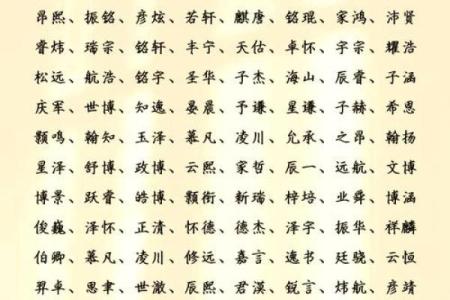 昂熙、振铭、彦炫、若轩、麒唐、铭琨、家鸿、沛贤
睿炜、瑞宗、铭轩、丰宁、天佑、卓怀、宇宗、耀浩
松远、航浩、铭宇、圣华、子杰、海山、辰睿、子涵
庆军、世博、知逸、晏晨、予谦、星谦、子赫、希恩
颢鸣、翰知、玉泽、慕凡、凌川、允承、之昂、翰扬
星泽、舒博、政博、云熙、家哲、辰一、远航、文博
博景、跃睿、皓博、颢衔、新瑞、梓培、业舜、博涵
俊巍、泽怀、正清、怀德、德杰、泽宇、振华、祥麟
伯卿、慕凡、凌川、修远、嘉言、逸书、廷骁、云恒
羿卓、思聿、世澈、辰熙、君漠、锐言、炜航、彦靖